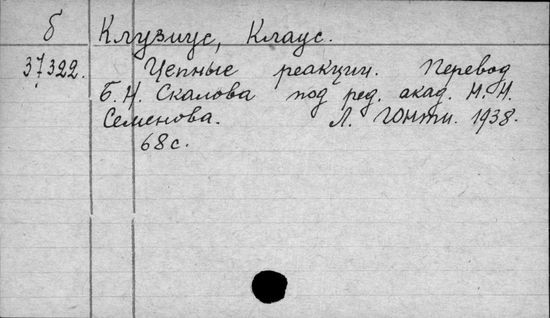 б Клузиус, Клаус.
37322. Цепные реакции. Перевод
Б. Н. Скалова под ред. акад. Н. Н.
Семенова. Л. ГОНТИ. 1938.
68 с.